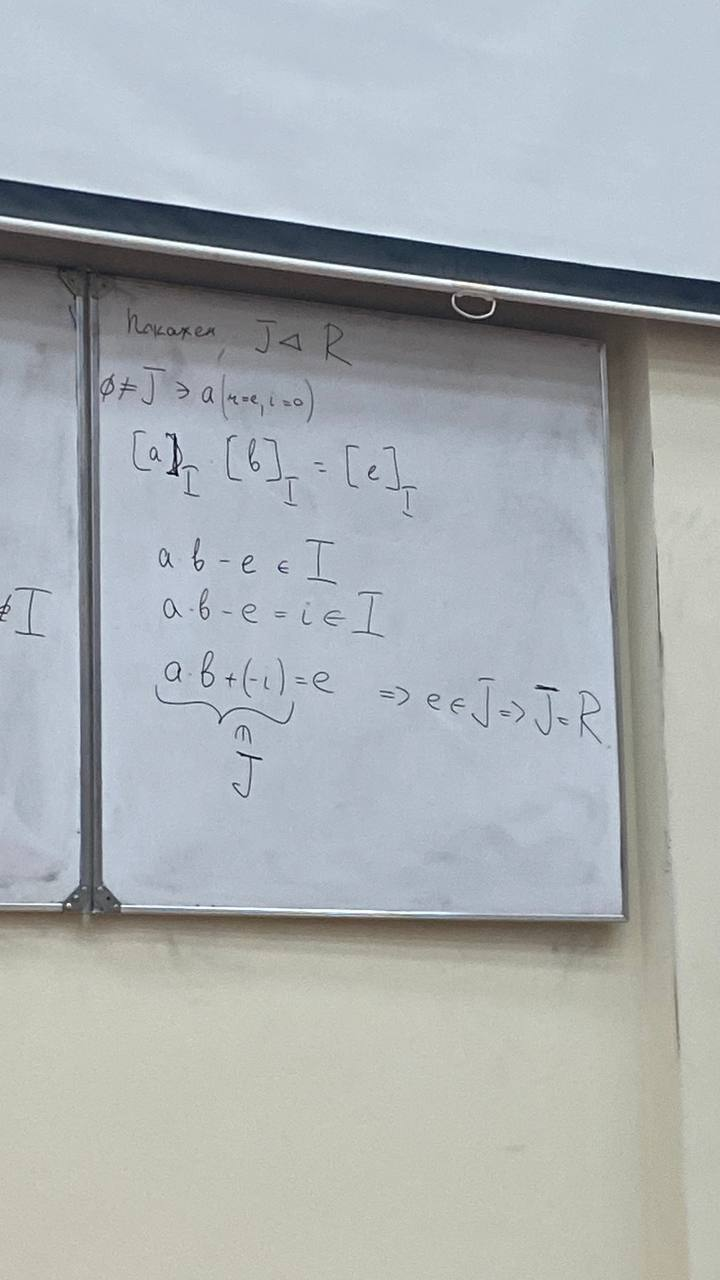 Покажем, J ⊲ R
∅ ≠ J ∋ a (r=e, i=0)
[a]_I · [b]_I = [e]_I
a b - e ∈ I
∉ I
a·b - e = i ∈ I
a·b + (-i) = e ⇒ e ∈ J ⇒ J = R
∈
J